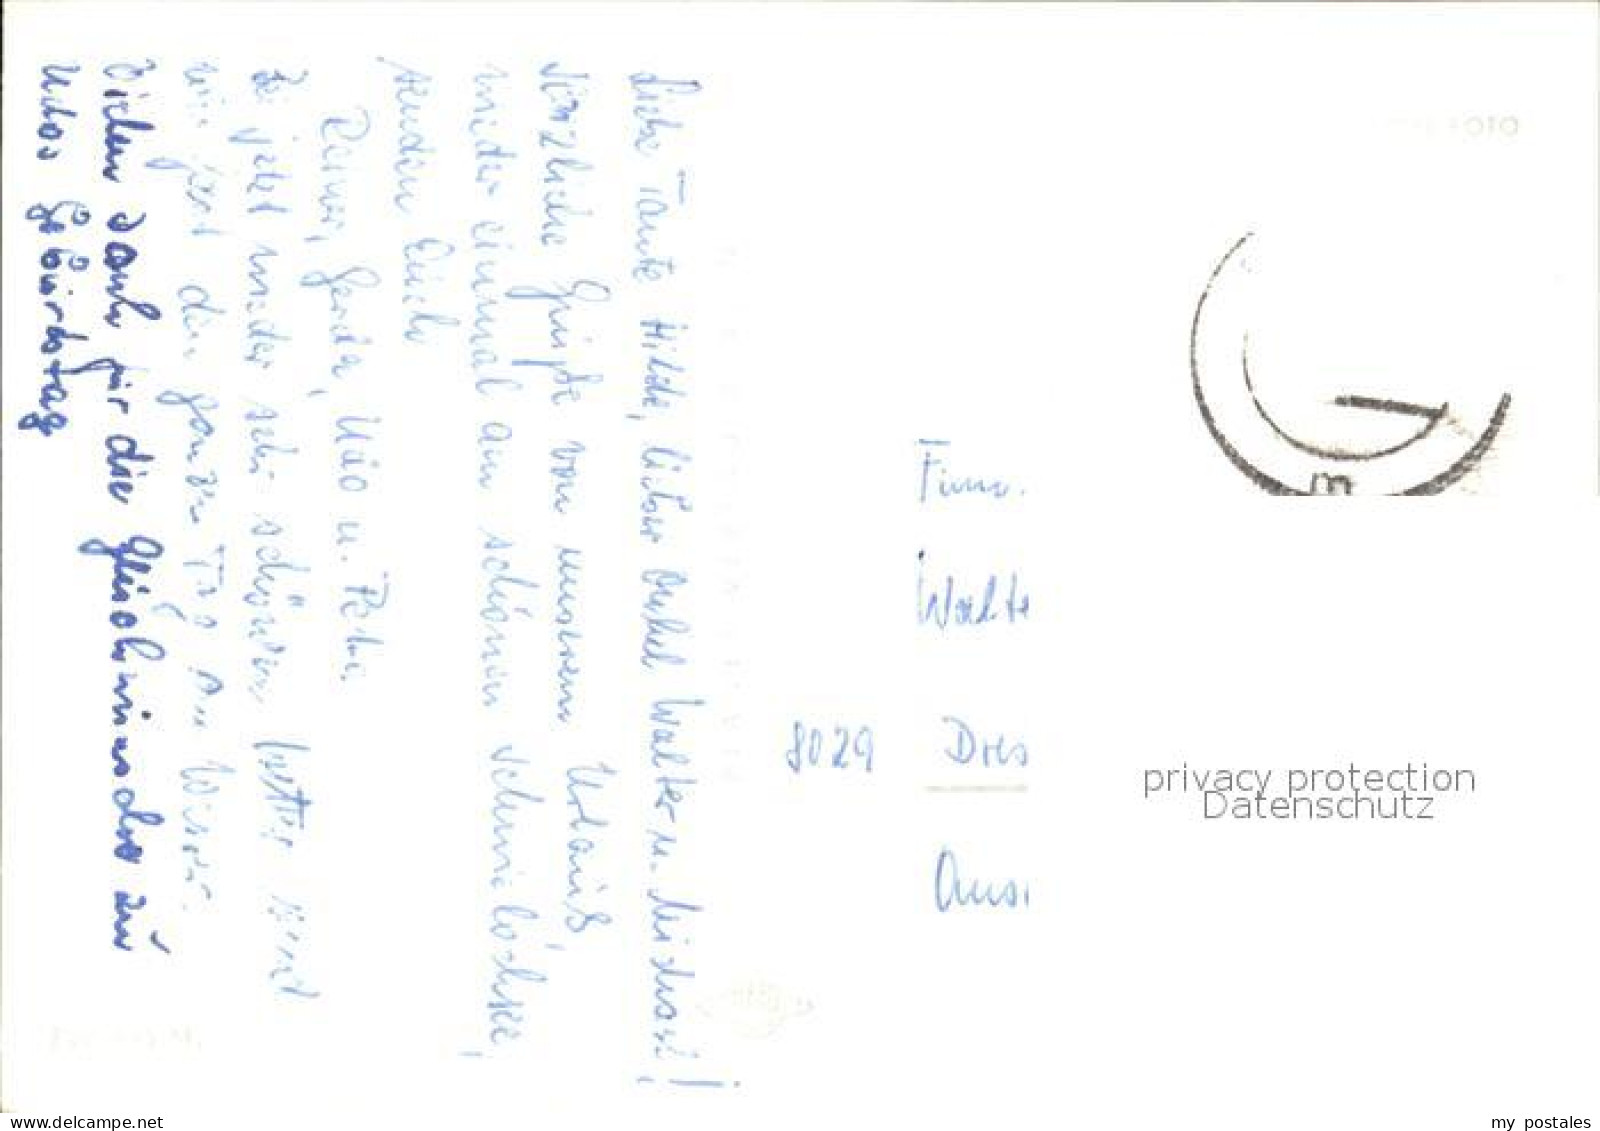 Liebe Tante Hilde, lieber Onkel Walter u. Michael!
Herzliche Grüße von unserem Urlaub,
wieder einmal am schönen Schmielochsee,
senden Euch
Reiner, Gerda, Udo u. Peter
Zt. jetzt wieder sehr schönem Wetter sind
wir fast den ganzen Tag am Wasser.
Vielen Dank für die Glückwünsche zu
Udos Geburtstag
Fam.
Walte
8029 Dres
privacy protection
Datenschutz
delcampe.net
my_postales